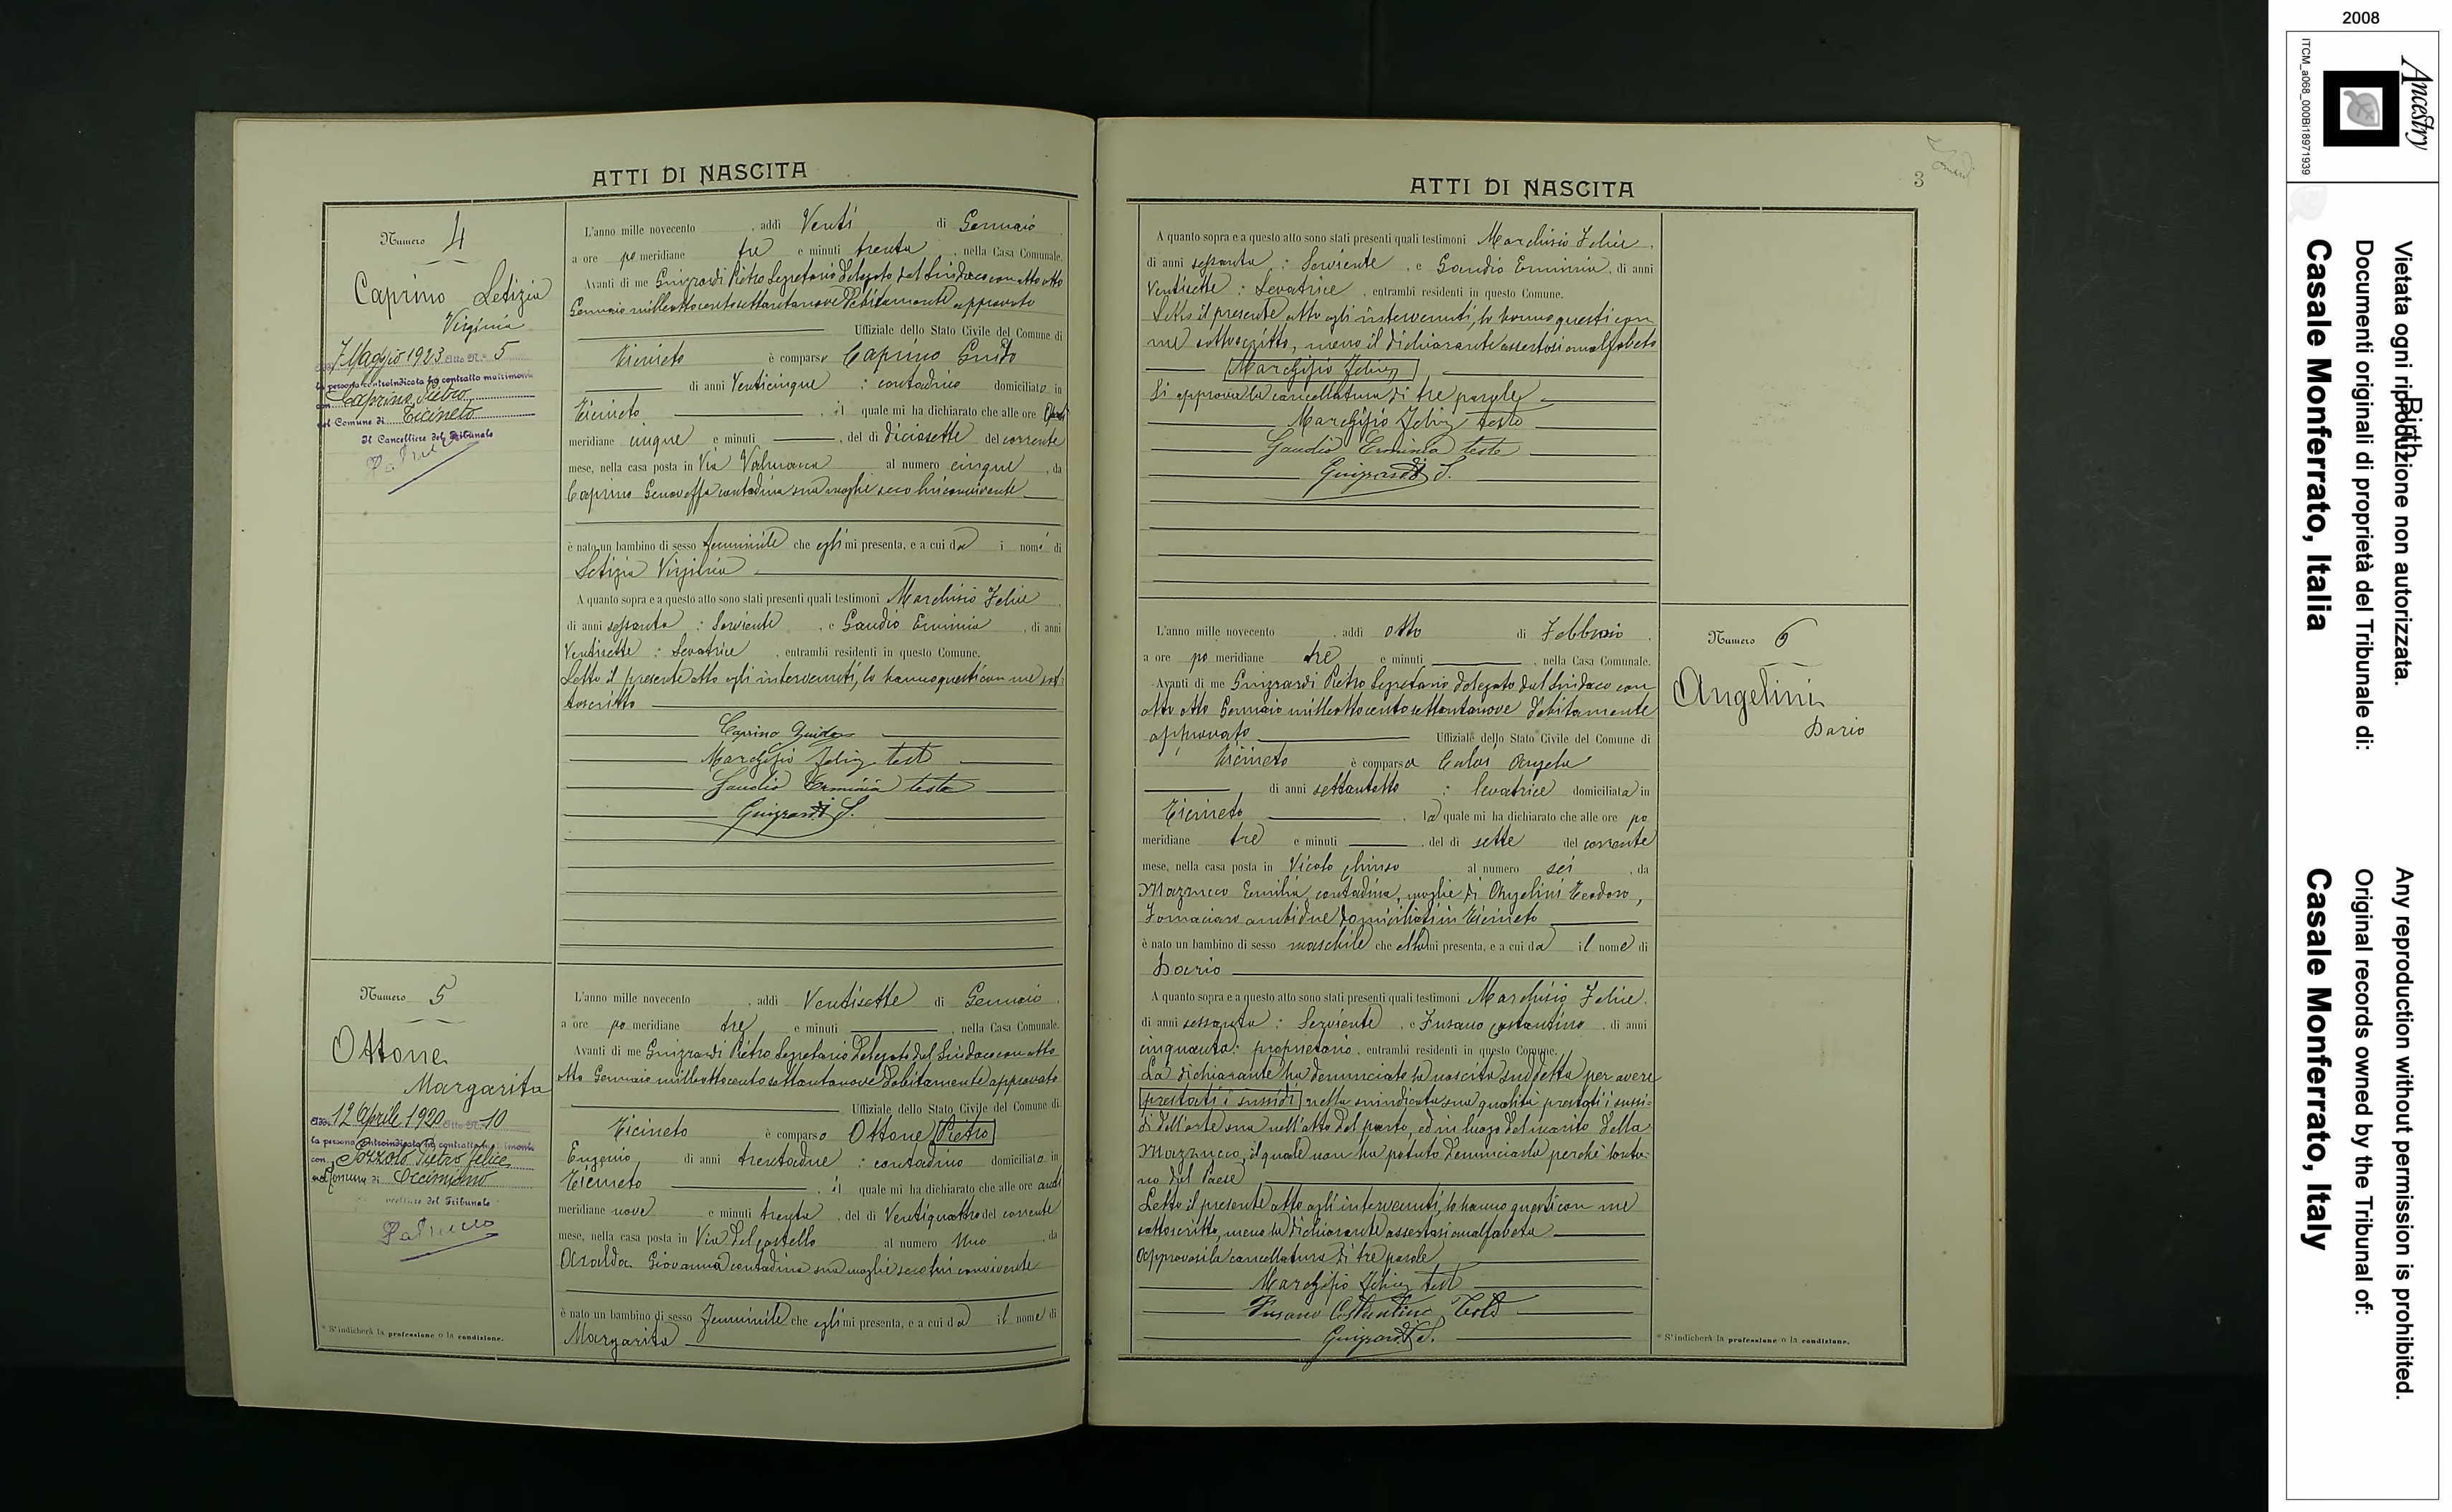 ATTI DI NASCITA
Numero 4
Caprino Letizia
Virginia
7 Maggio 1923 Atto N.° 5
la persona controindicata ha contratto matrimonio
con Caprino Pietro
nel Comune di Ticineto
Il Cancelliere del Tribunale
L'anno mille novecento , addì Venti di Gennaio
a ore po meridiane tre e minuti trenta , nella Casa Comunale.
Avanti di me Guizzardi Pietro Segretario delegato dal Sindaco con atto otto
Gennaio milleottocentosettantanove debitamente approvato
Uffiziale dello Stato Civile del Comune di
Ticineto è comparso Caprino Guido
di anni Venticinque : contadino domiciliato in
Ticineto , il quale mi ha dichiarato che alle ore
meridiane cinque e minuti , del dì diciasette del corrente
mese, nella casa posta in Via Valmacca al numero cinque , da
Caprino Genoveffa contadina sua moglie seco lui convivente
è nato un bambino di sesso femminile che egli mi presenta, e a cui dà i nomi di
Letizia Virginia
A quanto sopra e a questo atto sono stati presenti quali testimoni Marchisio Felice
di anni sessanta : Serviente , e Gaudio Erminia , di anni
Ventisette : Levatrice , entrambi residenti in questo Comune.
Letto il presente atto agli intervenuti, lo hanno questi con me sot-
toscritto
Caprino Guido
Marchisio Felice test
Gaudio Erminia teste
Guizzardi S.
Numero 5
Ottone
Margarita
Addì 12 Aprile 1920 Atto N. 10
la persona controindicata ha contratto matrimonio
con Pozzolo Pietro Felice
nel Comune di Occimiano
Cancelliere del Tribunale
L'anno mille novecento , addì Ventisette di Gennaio
a ore po meridiane tre e minuti , nella Casa Comunale.
Avanti di me Guizzardi Pietro Segretario delegato dal Sindaco con atto
otto Gennaio milleottocentosettantanove debitamente approvato
Uffiziale dello Stato Civile del Comune di
Ticineto è comparso Ottone Pietro
Eugenio di anni trentadue : contadino domiciliato in
Ticineto , il quale mi ha dichiarato che alle ore anti
meridiane nove e minuti trenta , del dì Ventiquattro del corrente
mese, nella casa posta in Via del Castello al numero Uno , da
Giovanna contadina sua moglie seco lui convivente
è nato un bambino di sesso femminile che egli mi presenta, e a cui dà il nome di
Margarita
* S'indicherà la professione o la condizione.
ATTI DI NASCITA
3
A quanto sopra e a questo atto sono stati presenti quali testimoni Marchisio Felice ,
di anni sessanta : Serviente , e Gaudio Erminia , di anni
Ventisette : Levatrice , entrambi residenti in questo Comune.
Letto il presente atto agli intervenuti, lo hanno questi con
me sottoscritto, meno il dichiarante assertosi analfabeta
Marchisio Felice
Si approva la cancellatura di tre parole
Marchisio Felice teste
Gaudio Erminia teste
Guizzardi S.
L'anno mille novecento , addì otto di Febbraio .
a ore po meridiane tre e minuti , nella Casa Comunale.
Avanti di me Guizzardi Pietro Segretario delegato dal Sindaco con
atto otto Gennaio milleottocentosettantanove debitamente
approvato Uffiziale dello Stato Civile del Comune di
Ticineto è comparsa Angela
di anni settantotto : levatrice domiciliata in
Ticineto , la quale mi ha dichiarato che alle ore po
meridiane tre e minuti , del dì sette del corrente
mese, nella casa posta in Vicolo chiuso al numero sei , da
Mazzucco Emilia contadina, moglie di Angelini Teodoro,
Fornaciaro ambidue domiciliati in Ticineto
è nato un bambino di sesso maschile che ella mi presenta, e a cui dà il nome di
Dario
A quanto sopra e a questo atto sono stati presenti quali testimoni Marchisio Felice .
di anni sessanta : Serviente , e Fusano Costantino , di anni
cinquanta : proprietario , entrambi residenti in questo Comune.
La dichiarante ha denunciato la nascita suddetta per avere
prestati i sussidi nella suindicata sua qualità prestati i sussi-
di dell'arte sua nell'atto del parto, ed in luogo del marito della
Mazzucco, il quale non ha potuto denunciarla perchè lonta-
no dal Paese
Letto il presente atto agli intervenuti, lo hanno questi con me
sottoscritto, meno la dichiarante assertasi analfabeta
Approvasi la cancellatura di tre parole
Marchisio Felice test
Fusano Costantino Teste
Guizzardi S.
Numero 6
Angelini
Dario
* S'indicherà la professione o la condizione.
2008
Ancestry
ITCM_a068_000Bi18971939
Birth
Vietata ogni riproduzione non autorizzata.
Documenti originali di proprietà del Tribunale di:
Casale Monferrato, Italia
Any reproduction without permission is prohibited.
Original records owned by the Tribunal of:
Casale Monferrato, Italy